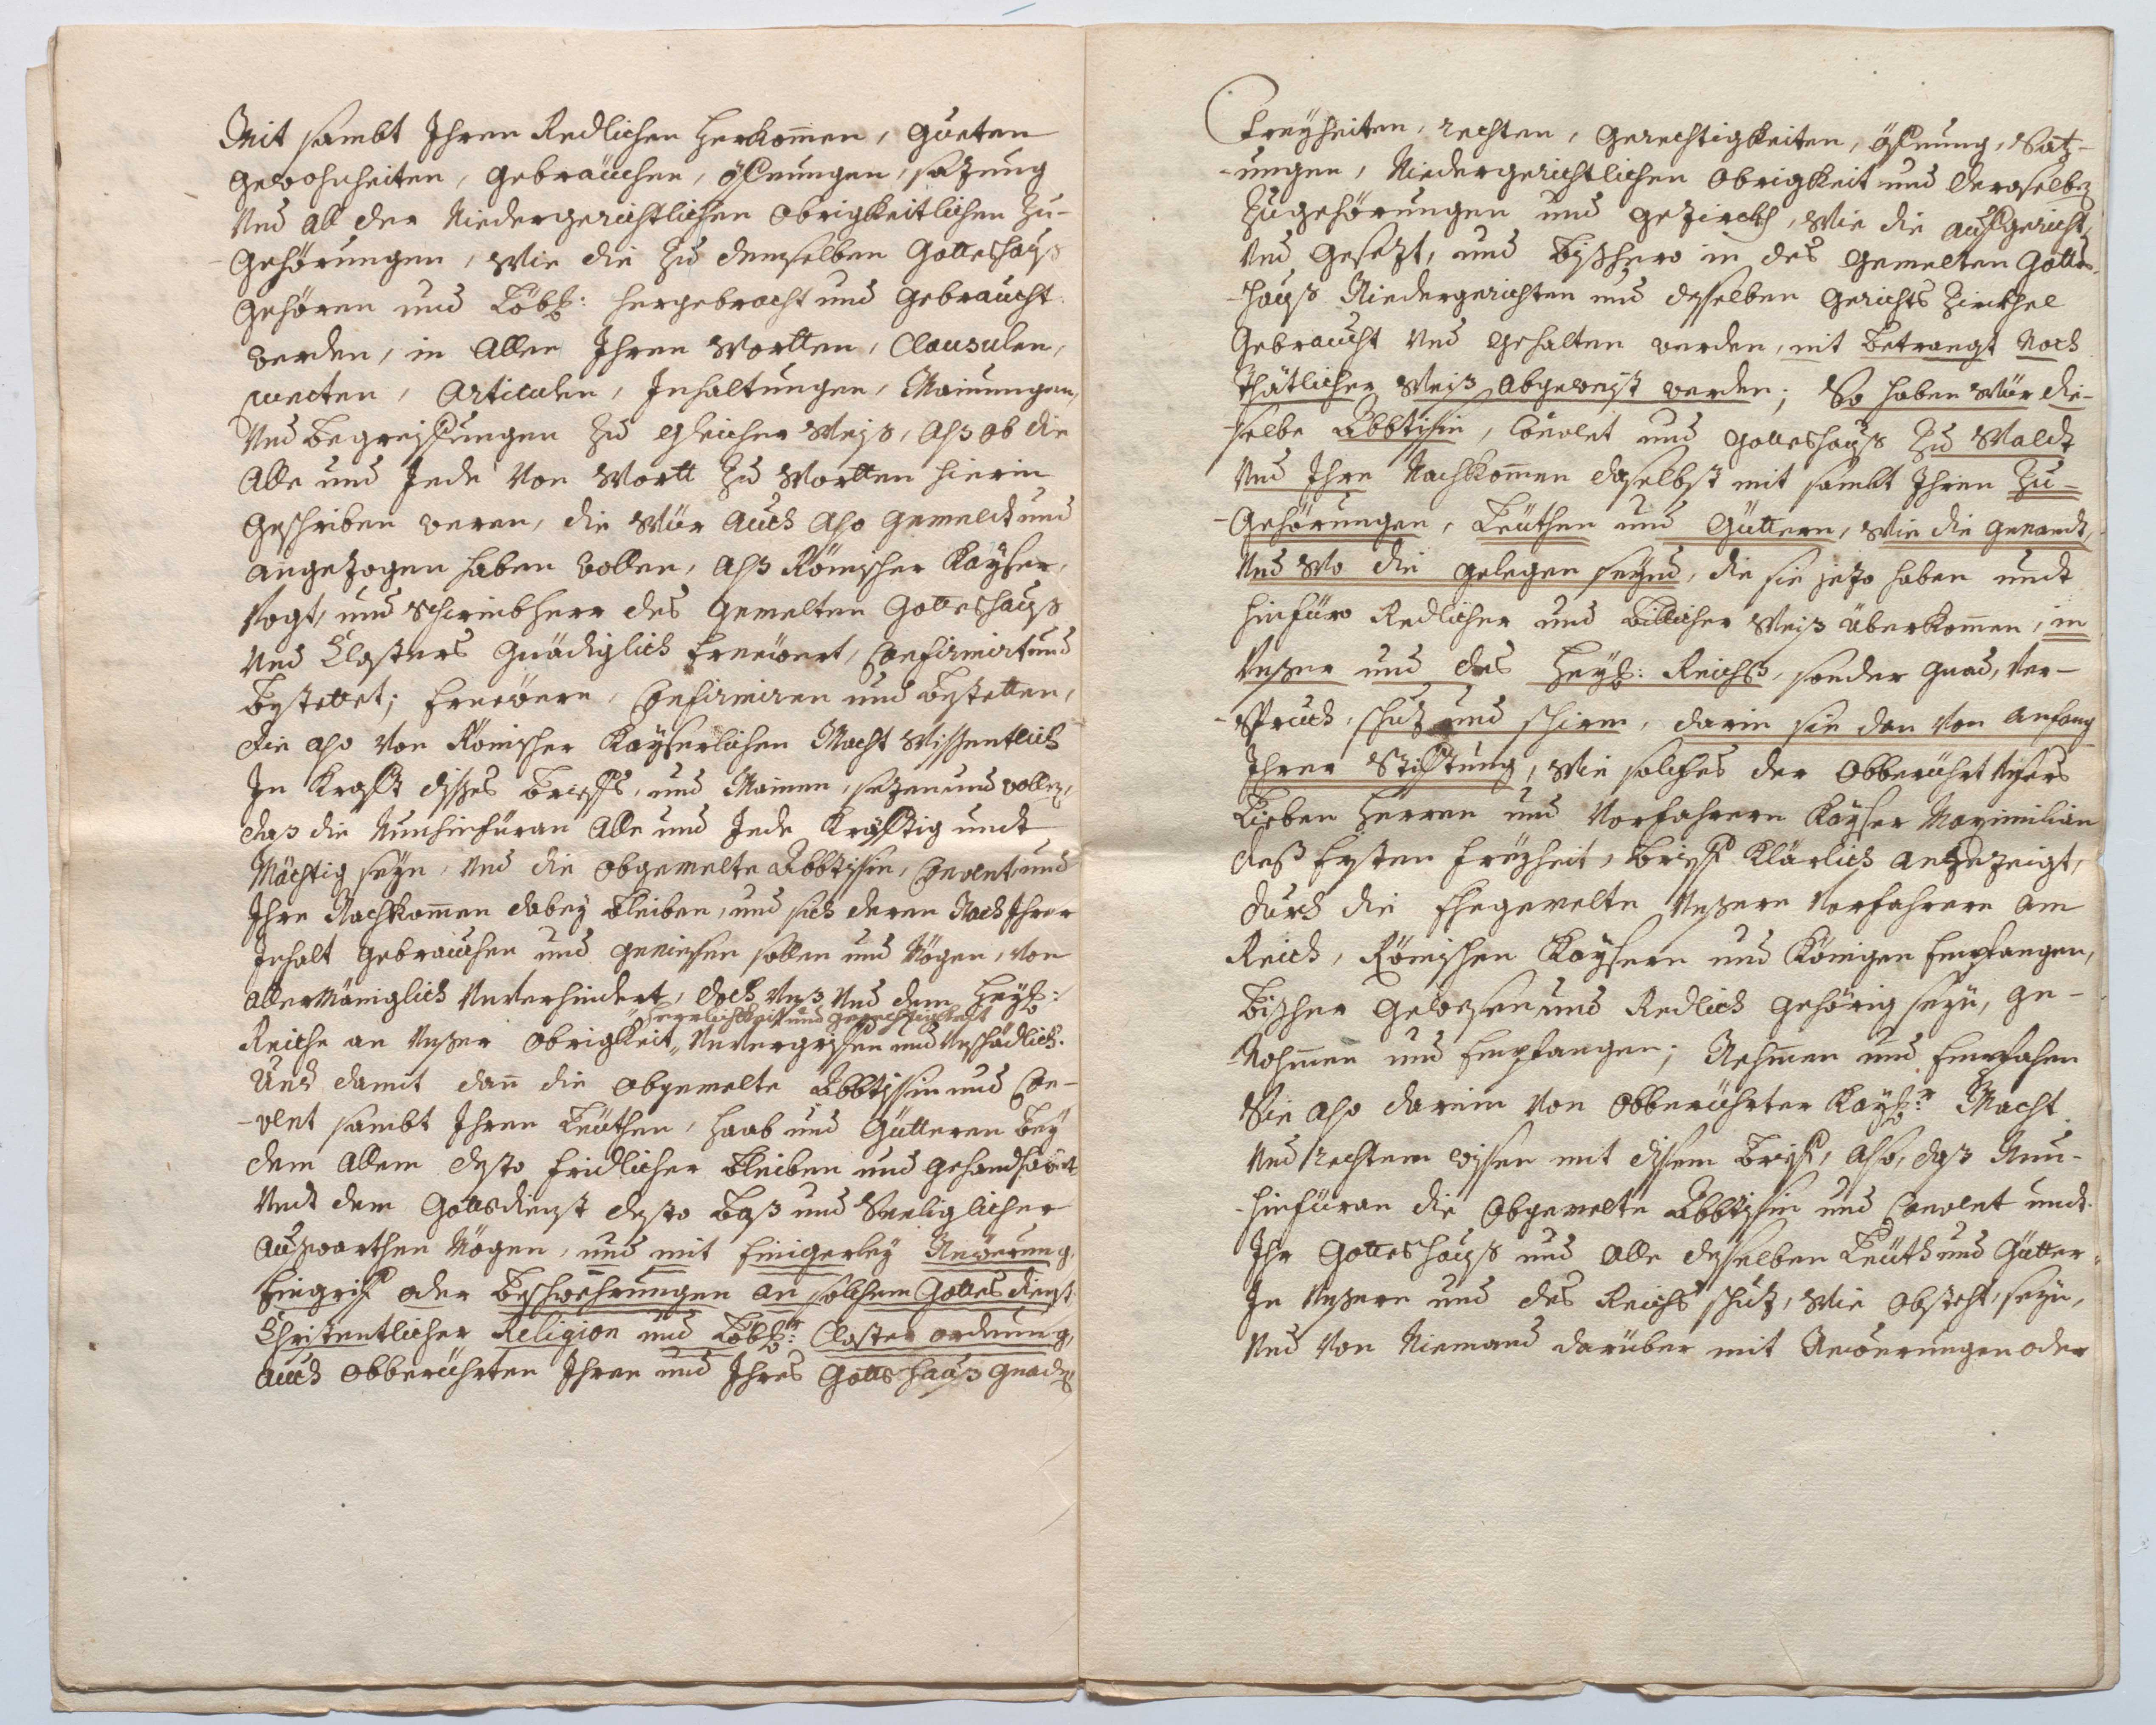 Mit sambt Ihren Redlichen Herkom̄en, Gueten
Gewohnheiten, Gebräuchen, öffnungen, sazung
Und all der Nidergerichtlichen Obrigkeitlichen Zu-
Gehörungen, Wie die Zu demselben Gotteshauß
Gehören und Löbl: hergebracht und Gebraucht
werden, in Allen Ihren Wortten, Clausulen,
puncten, Articulen, Inhaltungen, Mainungen,
Und Begreiffungen Zu gleicher Weiß, Alß ob die
Alle und Jede Von Wortt Zu Wortten hierin
Geschriben weren, die Wür Auch Also gemeldt und
angezogen haben wollen, Alß Römischer Kayser,
Vogt, und Schirmbherr des gemelten Gotteshauß
Und Closters Gnädiglich Ernewert, Confirmirt und
Bestettet; Ernewern, Confirmiren und Bestetten,
die Also Von Römischer Kayserlichen Macht Wissentlich
In Krafft dißes Brieffs, und Mainen, sezen und wollen,
daß die Nunhinfüran Alle und Jede Kräfftig undt
Mächtig seyn, Und die Obgemelte Äbbtissin, Convent und
Ihre Nachkom̄en dabey Bleiben, und sich deren Nach Ihrer
Inhalt Gebrauchen und geniessen sollen und Mögen, Von
Allermäniglich Unverhindert, doch Unß Und dem Heyl:
herrlichkeit und gerechtigkeit
Reiche an Unßer Obrigkeit, Unvergriffen und Unschädlich.
Und damit dan̄ die Obgemelte Äbbtissin und Con-
-vent sambt Ihren Leüthen, Haab und Güttern Bey
dem Allem desto fridlicher Bleiben und gehandhabt
Undt dem Gottsdienst desto Baß und Seeliglicher
Außwarthen Mögen, und mit Einigerley Newerung,
Eingriff oder Beschwehrungen an solchem Gottesdienst
Christentlicher Religion und Löbl:r Closter ordnung,
Auch Obberührten Ihren und Ihres Gottshauß gnaden
Freyheiten, rechten, Gerechtigkeiten, öffnung, Satz-
-ungen, Nidergerichtlichen Obrigkeit und derselben
Zugehörungen und gezirckh, Wie die Auffgericht,
Und Gesezt, und Bißhero in des gemelten Gotts-
-hauß Nidergerichten und desselben Gerichts Zirckhel
Gebraucht Und Gehalten werden, nit Betrangt Noch
Thätlicher Weiß Abgeweist werden; So haben Wür die-
-selbe Äbbtißin, Convent und Gotteshauß Zu Waldt
Und Ihre Nachkom̄en daselbst mit sambt Ihren Zu-
-Gehörungen, Leüthen und Güttern, Wie die Genandt,
Und Wo die gelegen seynd, die sie jezo haben undt
hinfüro Redlicher und Billicher Weiß überkom̄en, in
Unßer und des Heyl: Reichß, sonder Gnad, Ver-
-Spruch, schuz und schirm, darin sie dan Von Anfang
Ihrer Stifftung, Wie solches der Obberührt Unsers
Lieben Herren und Vorfahren Kayser Maximilian
deß Ersten freyheit, Brieff Klärlich Anzezeigt,
durch die Ehegemelte Unßere Vorfahren Am
Reich, Römischen Kaysern und Königen Empfangen,
Bißher Gewesen und Redlich Gehörig seyn, Ge-
-Nohmen und Empfangen; Nehmen und Empfahen
Sie Also darein Von Obberührter Kayl:r Macht
Und rechtem wissen mit disem Brieff, Also, daß Nun-
-hinfüran die Obgemelte Äbbtißin und Convent undt
Ihr Gotteshauß und Alle deßelben Leüth und Gütter
In Unßern und des Reichs schuz, Wie Obsteht, seyn,
Und Von Niemand darüber mit Newerungen oder